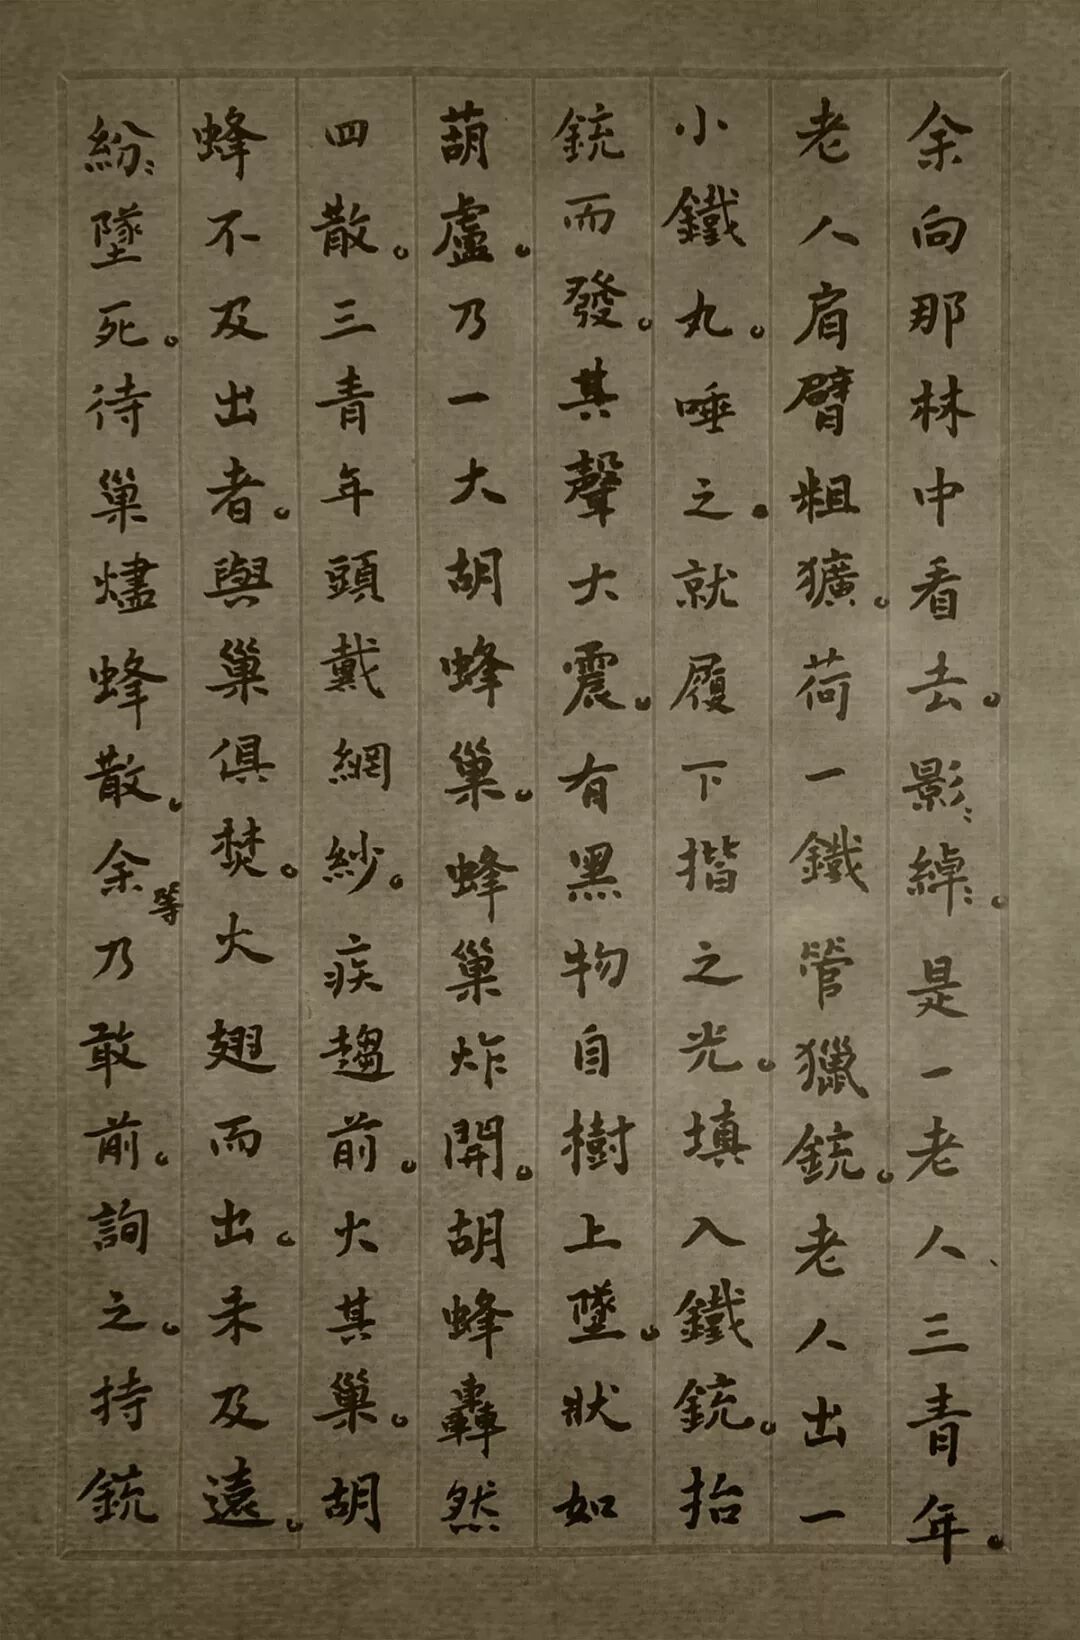 余向那林中看去。影〻綽〻。是一老人、三青年。
老人肩臂粗獷。荷一鐵管獵銃。老人出一
小鐵丸。唾之。就履下揩之光。填入鐵銃。抬
銃而發。其聲大震。有黑物自樹上墜。狀如
葫盧。乃一大胡蜂巢。蜂巢炸開。胡蜂轟然
四散。三青年頭戴網紗。疾趨前。火其巢。胡
蜂不及出者。與巢俱焚。火翅而出。未及遠。
紛〻墜死。待巢燼蜂散。余等乃敢前。詢之。持銃